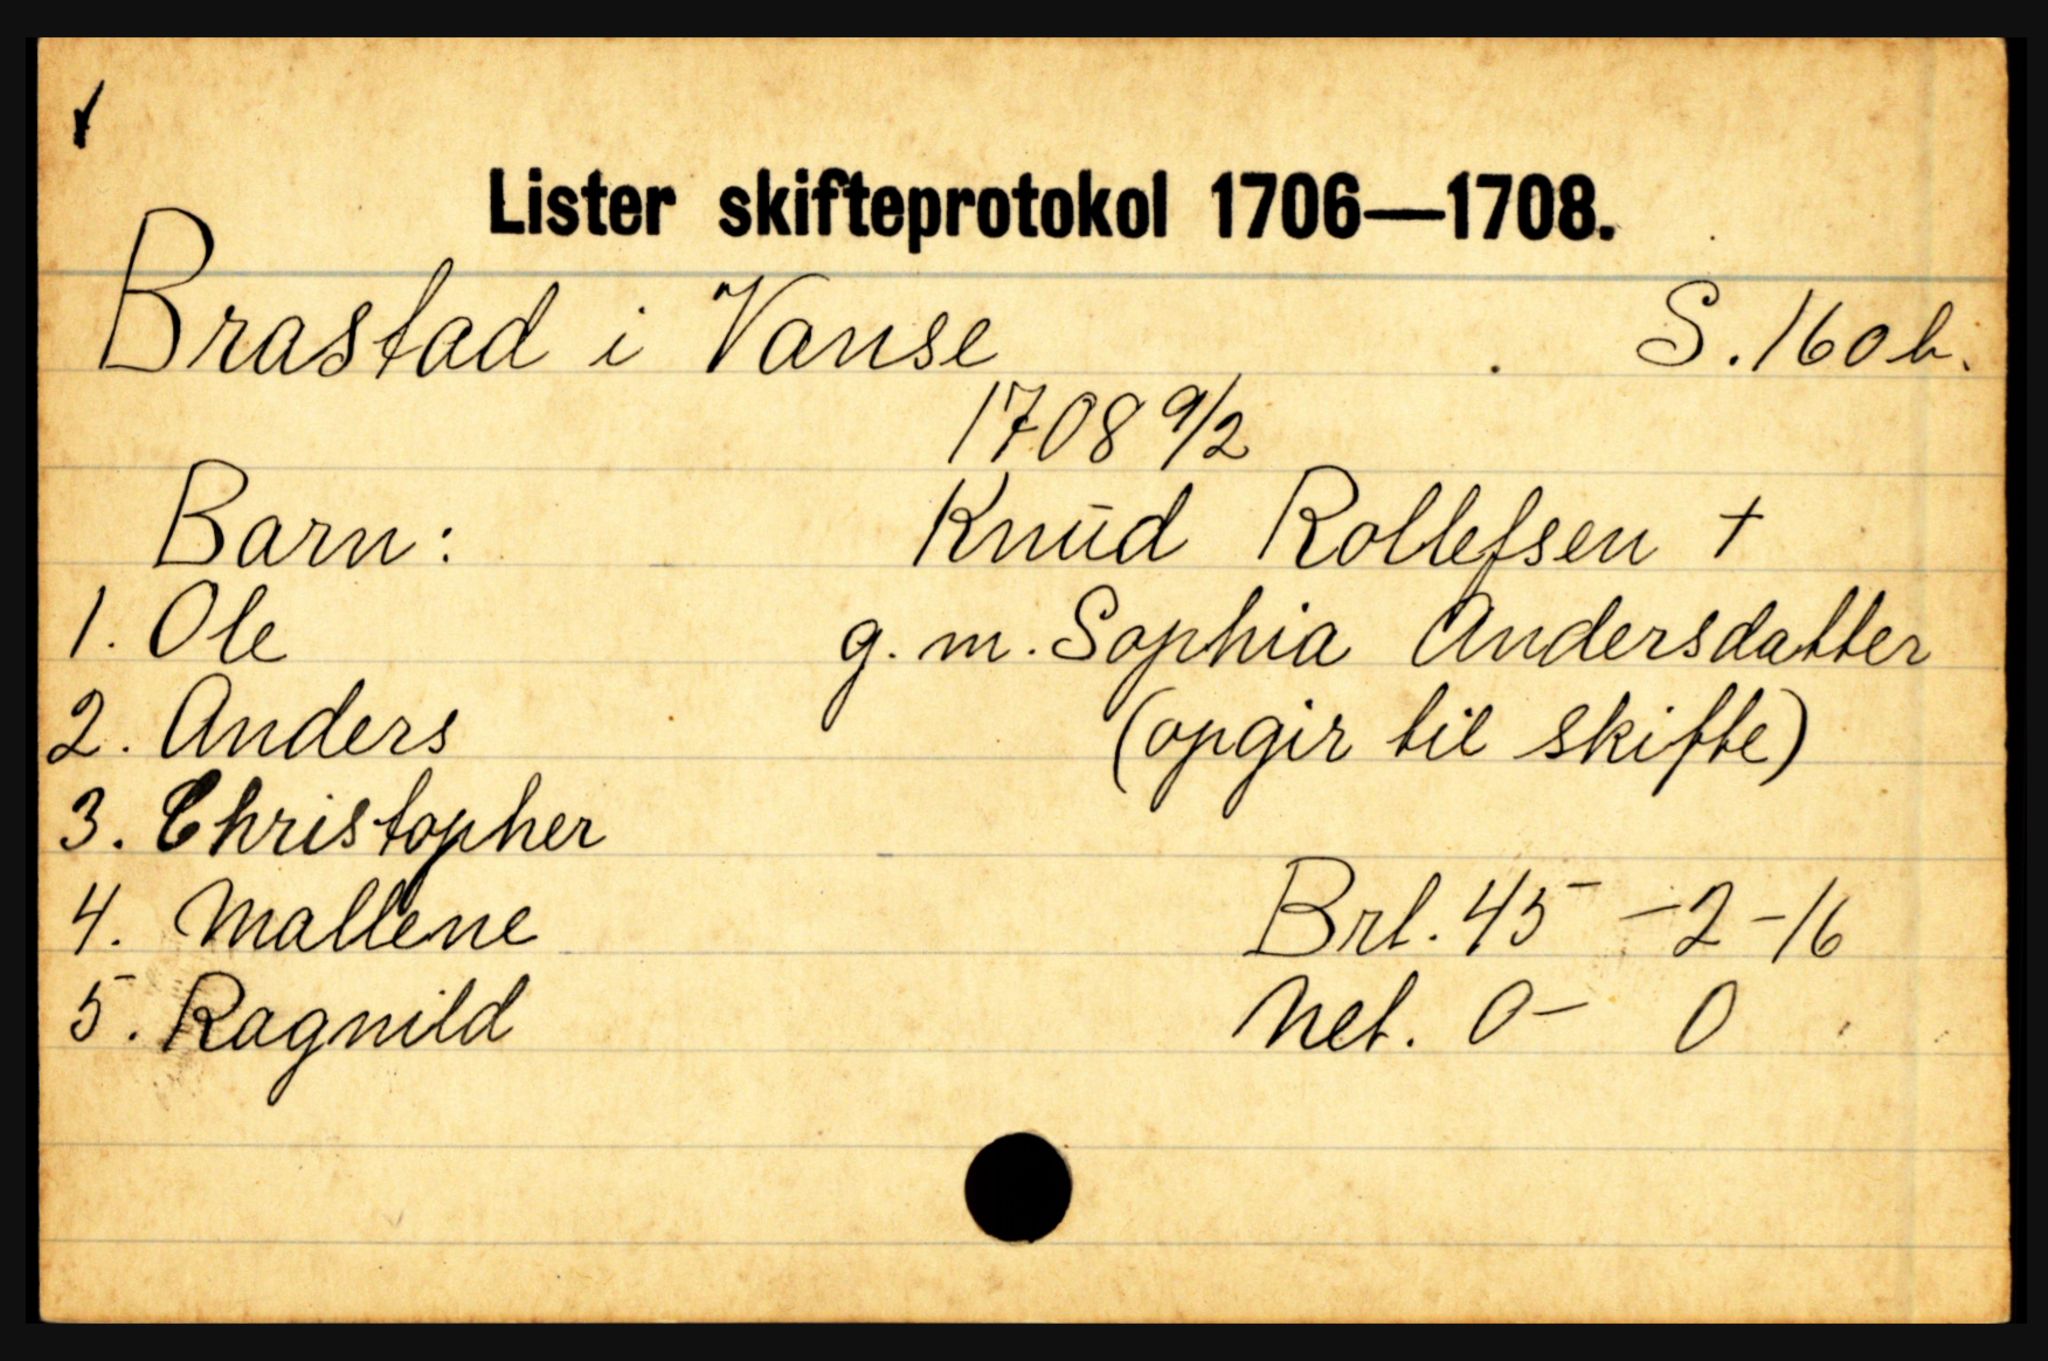 Lister skifteprotokol 1706—1708.
Brastad i Vanse . S. 160 b.
1708 9/2
Barn: Knud Rollefsen +
1. Ole g. m. Sophia Andersdatter
2. Anders (opgir til skifte)
3. Christopher
4. Mallene Brt. 45 - 2 - 16
5. Ragnild Net. 0 - 0